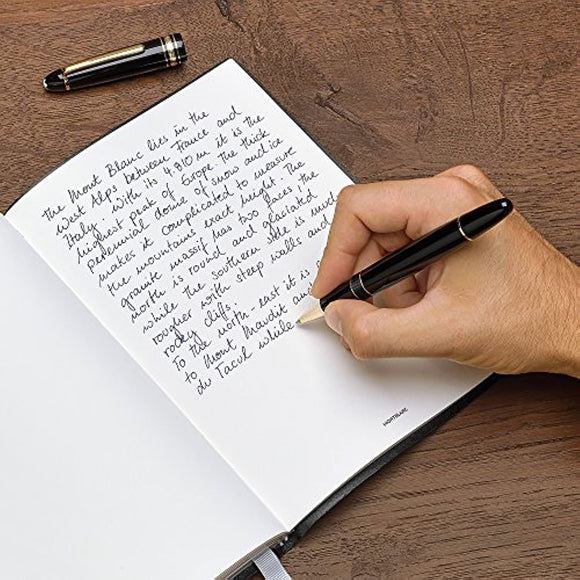 The Mont Blanc lies in the
West Alps between France and
Italy. With its 4.810 m it is the
highest peak of Europe the thick
perennial dome of snow and ice
makes it complicated to measure
the mountains exact height. The
granite massif has two faces, the
north is round and glaciated
while the southern side is much
rougher with steep walls and
rocky cliffs.
To the north-east it is
to Mont Maudit and
du Tacul while
MONTBLANC